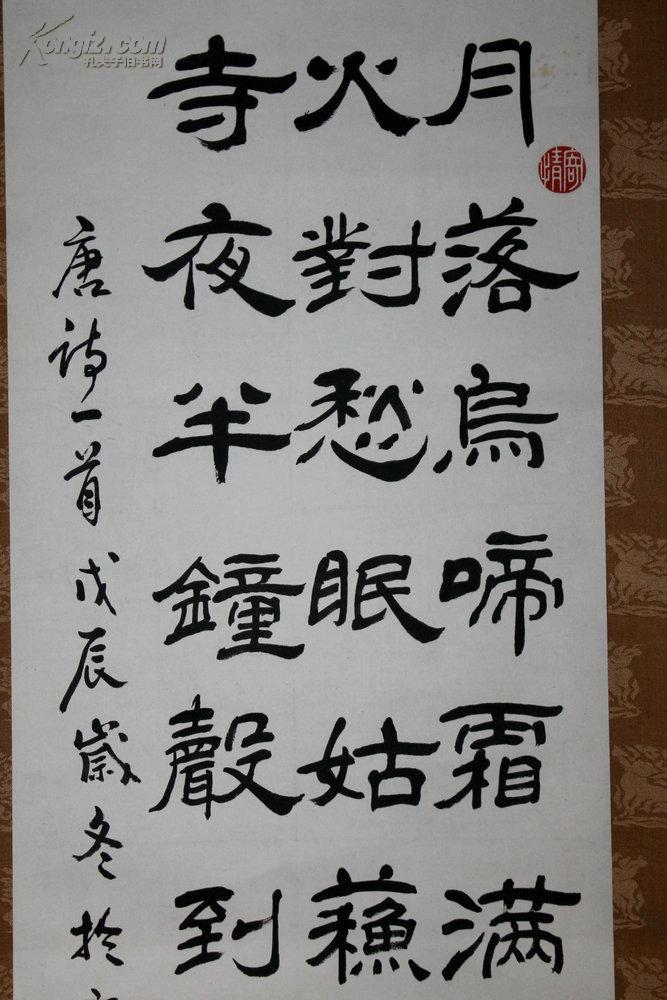 月落烏啼霜满
火對愁眠姑蘇
寺夜半鐘聲到
唐诗一首戊辰歲冬於
Kongfz.com
孔夫子旧书网